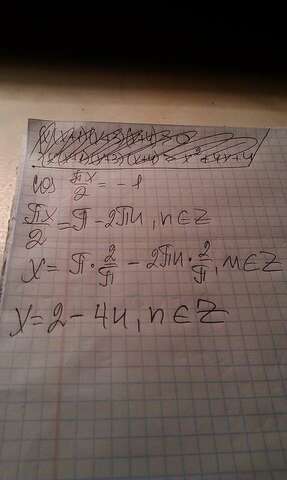 cos πx/2 = -1
πx/2 = π - 2πn, n∈Z
x = π · 2/π - 2πn · 2/π, n∈Z
x = 2 - 4n, n∈Z